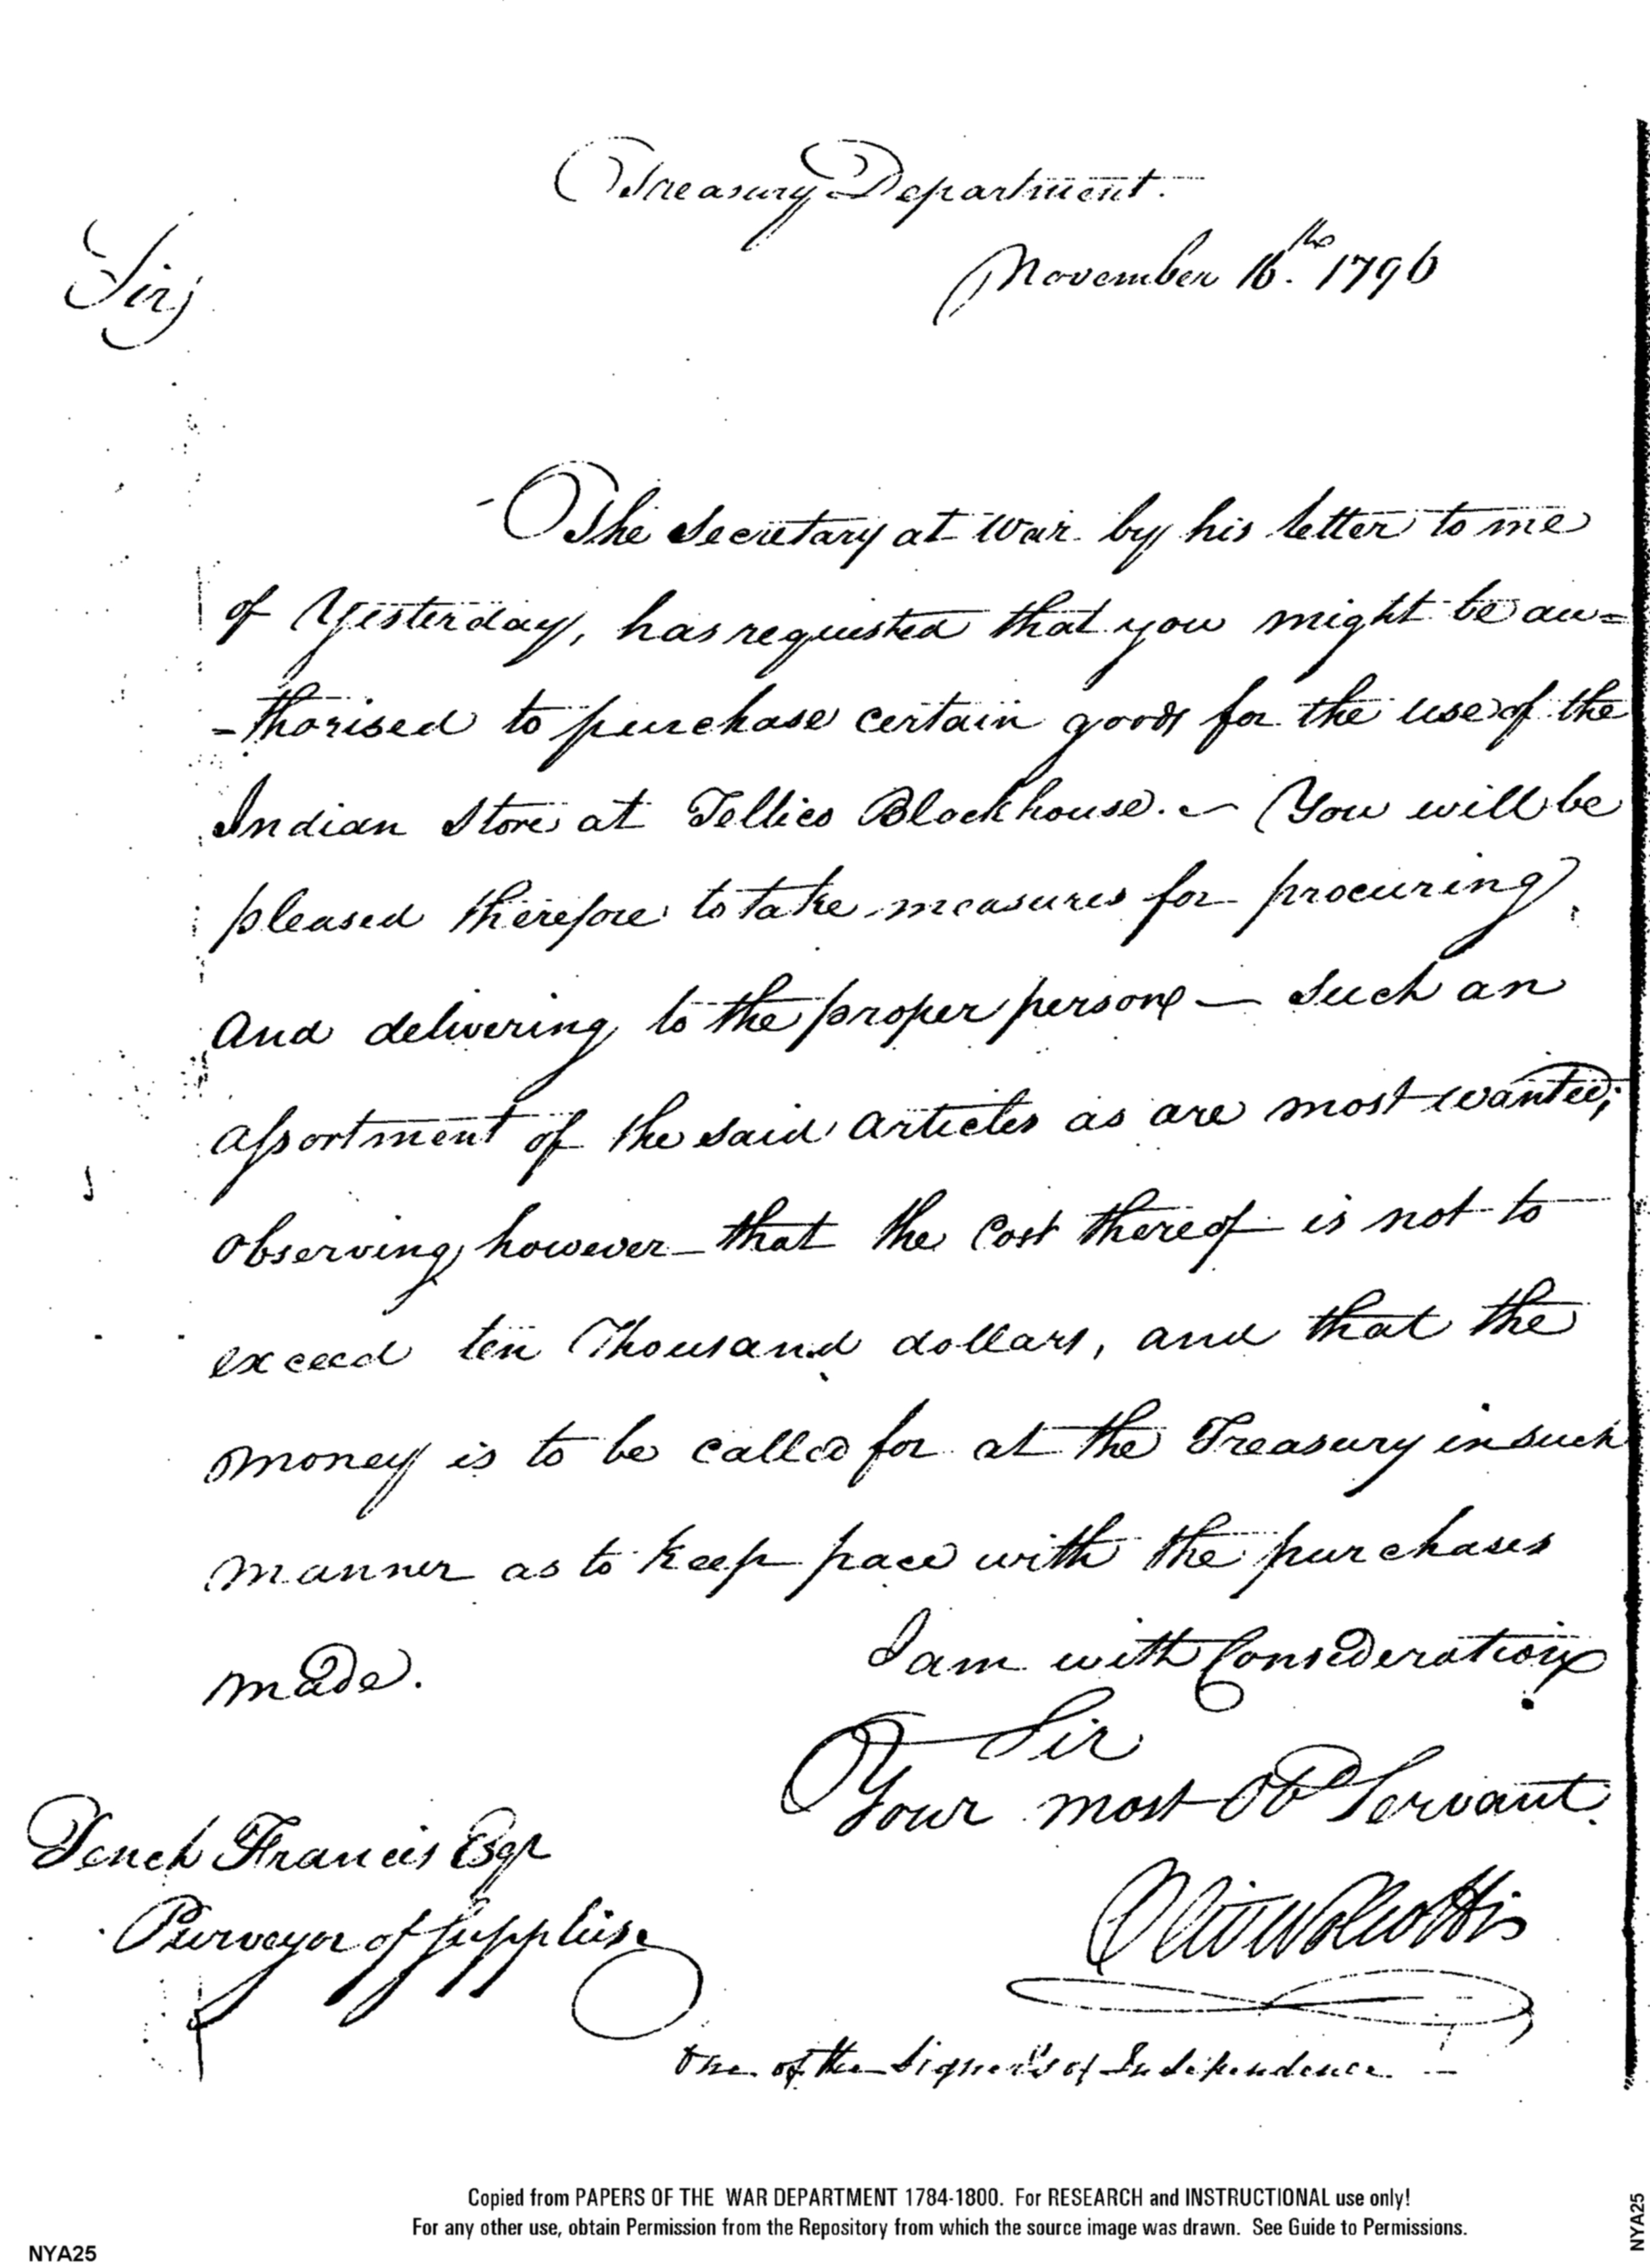 Treasury Department.
November 16.th 1796
Sir,
The Secretary at War by his letter to me
of Yesterday, has requested that you might be au=
-thorised to purchase certain goods for the use of the
Indian Store at Tellico Blockhouse. ~ You will be
pleased therefore to take measures for procuring
and delivering to the proper person — such an
assortment of the said articles as are most wanted;
observing however that the Cost thereof is not to
exceed ten Thousand dollars, and that the
money is to be called for at the Treasury in such
manner as to keep pace with the purchases
made.
I am with Consideration
Sir
Your most Obt Servant.
Tench Francis Esqr
Purveyor of Supplies.
Oliv Wolcott
One of the Signer's of Independence. —
Copied from PAPERS OF THE WAR DEPARTMENT 1784-1800. For RESEARCH and INSTRUCTIONAL use only!
For any other use, obtain Permission from the Repository from which the source image was drawn. See Guide to Permissions.
NYA25
NYA25